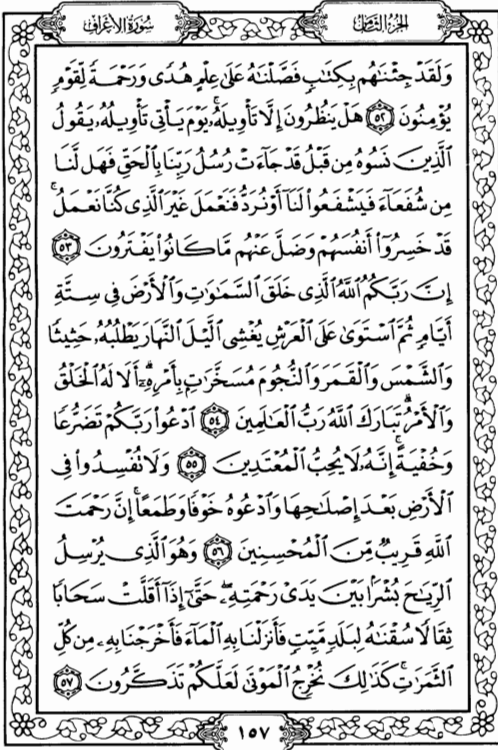 الجزء الثامن
سورة الأعراف
وَلَقَدْ جِئْنَٰهُم بِكِتَٰبٍ فَصَّلْنَٰهُ عَلَىٰ عِلْمٍ هُدًى وَرَحْمَةً لِّقَوْمٍ
يُؤْمِنُونَ ٥٢ هَلْ يَنظُرُونَ إِلَّا تَأْوِيلَهُۥ ۚ يَوْمَ يَأْتِى تَأْوِيلُهُۥ يَقُولُ
الَّذِينَ نَسُوهُ مِن قَبْلُ قَدْ جَآءَتْ رُسُلُ رَبِّنَا بِالْحَقِّ فَهَل لَّنَا
مِن شُفَعَآءَ فَيَشْفَعُوا۟ لَنَآ أَوْ نُرَدُّ فَنَعْمَلَ غَيْرَ الَّذِى كُنَّا نَعْمَلُ ۚ
قَدْ خَسِرُوٓا۟ أَنفُسَهُمْ وَضَلَّ عَنْهُم مَّا كَانُوا۟ يَفْتَرُونَ ٥٣
إِنَّ رَبَّكُمُ اللَّهُ الَّذِى خَلَقَ السَّمَٰوَٰتِ وَالْأَرْضَ فِى سِتَّةِ
أَيَّامٍ ثُمَّ اسْتَوَىٰ عَلَى الْعَرْشِ يُغْشِى الَّيْلَ النَّهَارَ يَطْلُبُهُۥ حَثِيثًا
وَالشَّمْسَ وَالْقَمَرَ وَالنُّجُومَ مُسَخَّرَٰتٍۭ بِأَمْرِهِۦٓ ۗ أَلَا لَهُ الْخَلْقُ
وَالْأَمْرُ ۗ تَبَارَكَ اللَّهُ رَبُّ الْعَٰلَمِينَ ٥٤ ادْعُوا۟ رَبَّكُمْ تَضَرُّعًا
وَخُفْيَةً ۚ إِنَّهُۥ لَا يُحِبُّ الْمُعْتَدِينَ ٥٥ وَلَا تُفْسِدُوا۟ فِى
الْأَرْضِ بَعْدَ إِصْلَٰحِهَا وَادْعُوهُ خَوْفًا وَطَمَعًا ۚ إِنَّ رَحْمَتَ
اللَّهِ قَرِيبٌ مِّنَ الْمُحْسِنِينَ ٥٦ وَهُوَ الَّذِى يُرْسِلُ
الرِّيَٰحَ بُشْرًۢا بَيْنَ يَدَىْ رَحْمَتِهِۦ ۖ حَتَّىٰٓ إِذَآ أَقَلَّتْ سَحَابًا
ثِقَالًا سُقْنَٰهُ لِبَلَدٍ مَّيِّتٍ فَأَنزَلْنَا بِهِ الْمَآءَ فَأَخْرَجْنَا بِهِۦ مِن كُلِّ
الثَّمَرَٰتِ ۚ كَذَٰلِكَ نُخْرِجُ الْمَوْتَىٰ لَعَلَّكُمْ تَذَكَّرُونَ ٥٧
١٥٧